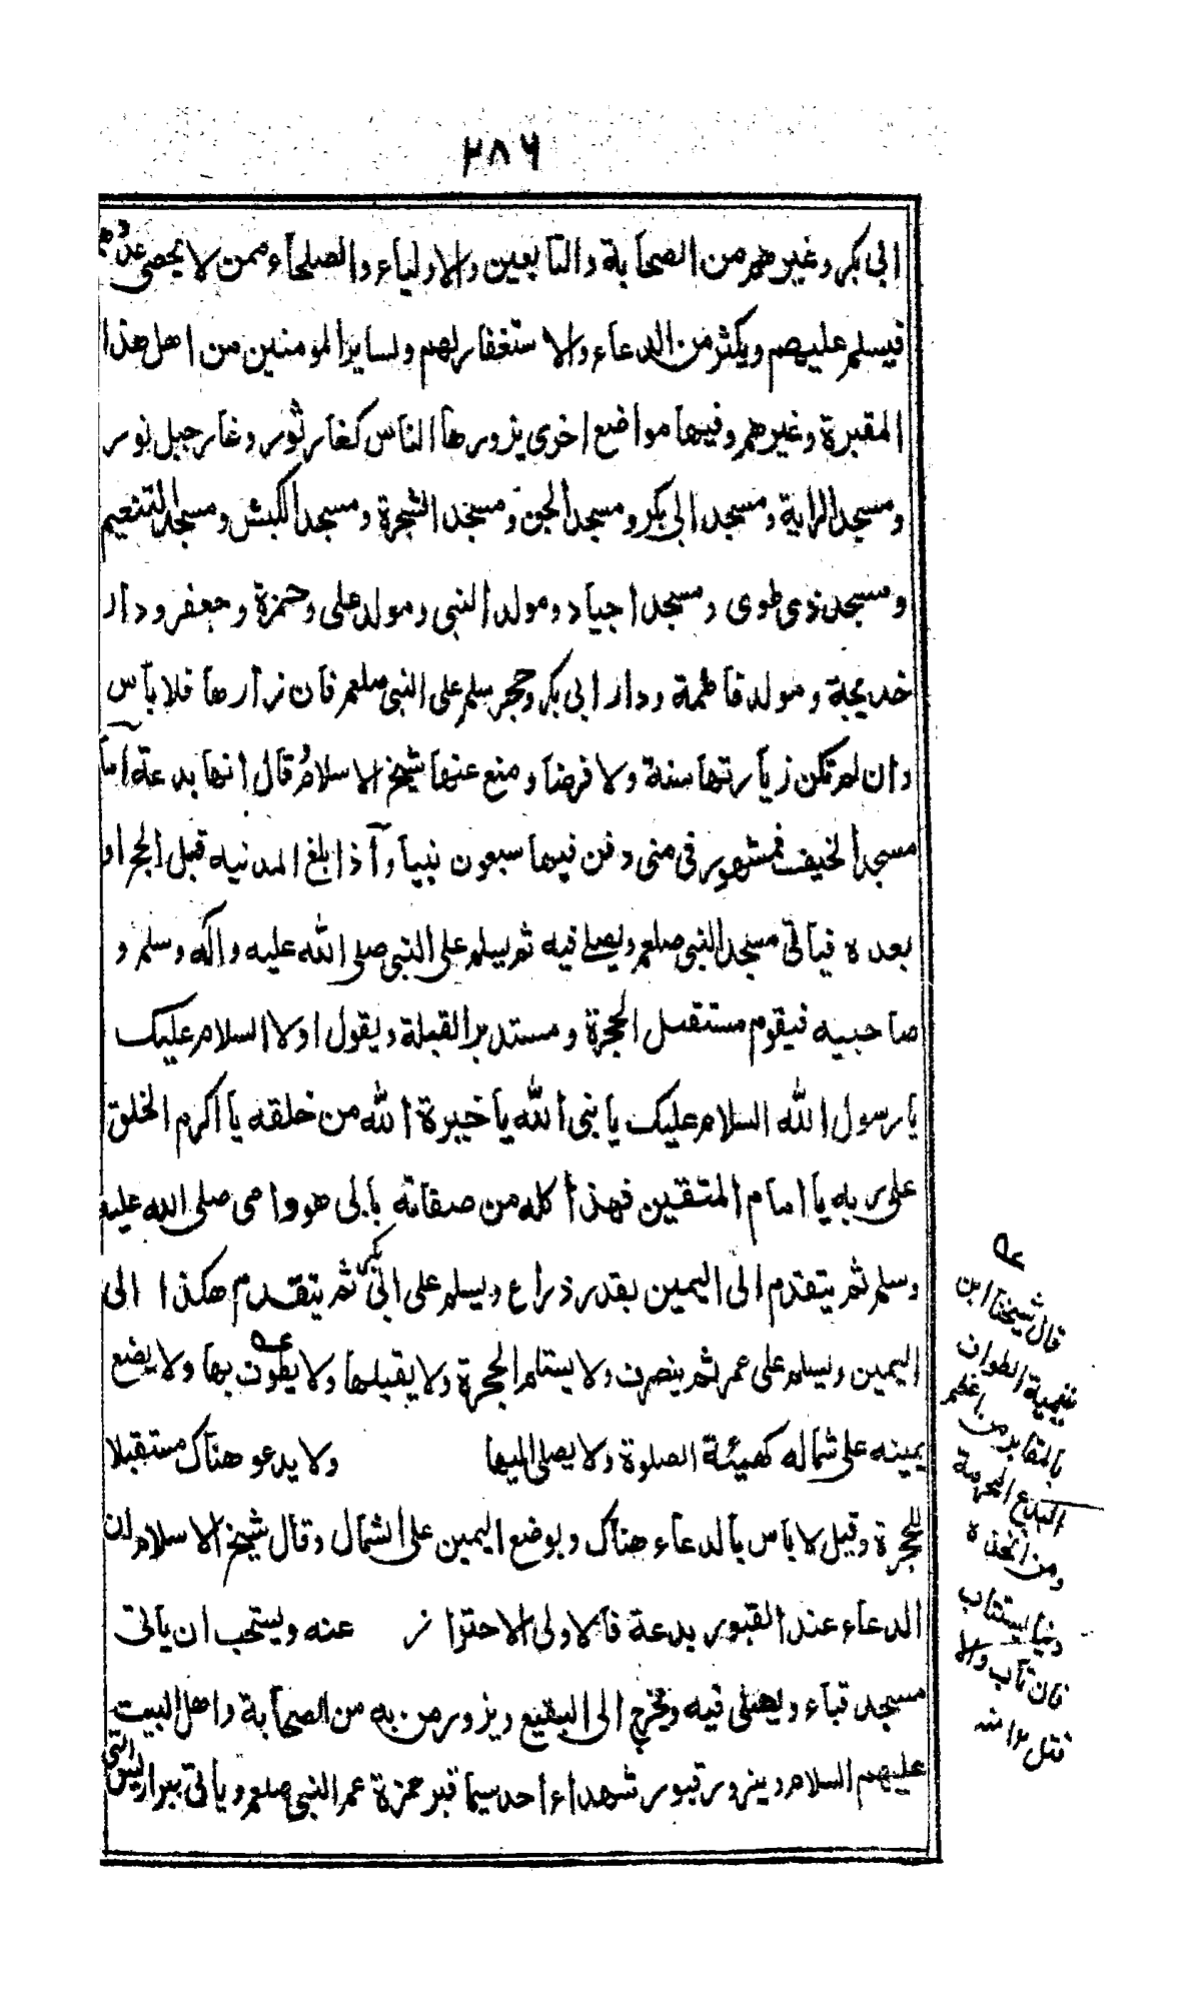 ٢٨٦
ابی بکر وغیرهم من الصحابة والتابعین والاولیاء والصلحاء ممن لا یحصی عددهم
فیسلم علیهم ویکثر من الدعاء والاستغفار لهم ولسایر المومنین من اهل هذا
المقبرة وغیرهم وفیها مواضع اخری یزورها الناس کغار ثور وغار جبل نور
ومسجد الرایة ومسجد ابی بکر ومسجد الجن ومسجد الشجرة ومسجد الکبش ومسجد التنعیم
ومسجد ذی طوی ومسجد اجیاد ومولد النبی ومولد علی وحمزة وجعفر ودار
خدیجة ومولد فاطمة ودار ابی بکر وحجر سلم علی النبی صلعم فان زارها فلا باس
وان لم تکن زیارتها سنة ولا فرضا ومنع عنها شیخ الاسلام قال انها بدعة اما
مسجد الخیف فمشهور فی منی دفن فیها سبعون نبیا واذا بلغ المدنیه قبل الحج او
بعده فیاتی مسجد النبی صلعم ویصلے فیه ثم یسلم علی النبی صلی الله علیه واله وسلم و
صاحبیه فیقوم مستقبل الحجرة ومستدبر القبلة ویقول اولا السلام علیک
یا رسول الله السلام علیک یا نبی الله یا خیرة الله من خلقه یا اکرم الخلق
علی ربه یا امام المتقین فهذا کله من صفاته بابی هو وامی صلی الله علیه
وسلم ثم یتقدم الی الیمین بقدر ذراع ویسلم علی ابی بکر ثم یتقدم هکذا الی
الیمین ویسلم علی عمر ثم ینصرف ولا یستلم الحجرة ولا یقبلها ولا یطوف بها ولا یضع
یمینه علی شماله کهیئة الصلوة ولا یصلی الیها ولا یدعو هناک مستقبلا
للحجرة وقیل لا باس بالدعاء هناک وبوضع الیمین علی الشمال وقال شیخ الاسلام ان
الدعاء عند القبور بدعة فالاولی الاحتراز عنه ویستحب ان یاتی
مسجد قباء ویصلی فیه ویخرج الی البقیع ویزور من به من الصحابة واهل البیت
علیهم السلام ویزور قبور شهداء احد سیما قبر حمزة عم النبی صلعم ویاتی بیر اریس التی
قال شیخنا ابن
تیمیة الطواف
بالمقابر من اعظم
البدع المحرمة
ومن اتخذه
دینا یستتاب
فان تاب والا
قتل ١٢ منه